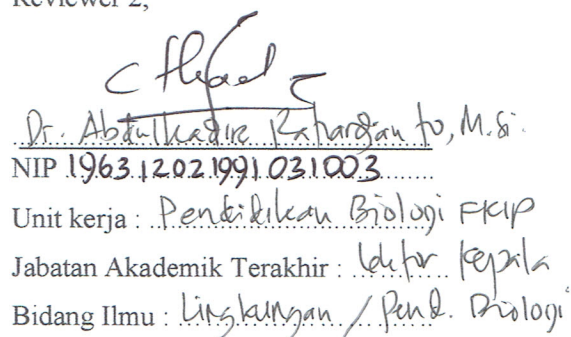 Reviewer 2,
Dr. Abdulkadir Rahardjanto, M.Si.
NIP 196312021991031003
Unit kerja : Pendidikan Biologi FKIP
Jabatan Akademik Terakhir : Lektor Kepala
Bidang Ilmu : Lingkungan / Pend. Biologi